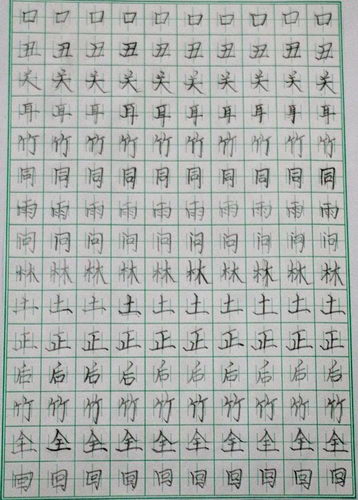 口口口口口口口口口口
丑丑丑丑丑丑丑丑丑丑
关关关关关关关关关关
耳耳耳耳耳耳耳耳耳耳
竹竹竹竹竹竹竹竹竹竹
同同同同同同同同同同
雨雨雨雨雨雨雨雨雨雨
问问问问问问问问问问
林林林林林林林林林林
土土土土土土土土土土
正正正正正正正正正正
后后后后后后后后后后
竹竹竹竹竹竹竹竹竹竹
全全全全全全全全全全
回回回回回回回回回回